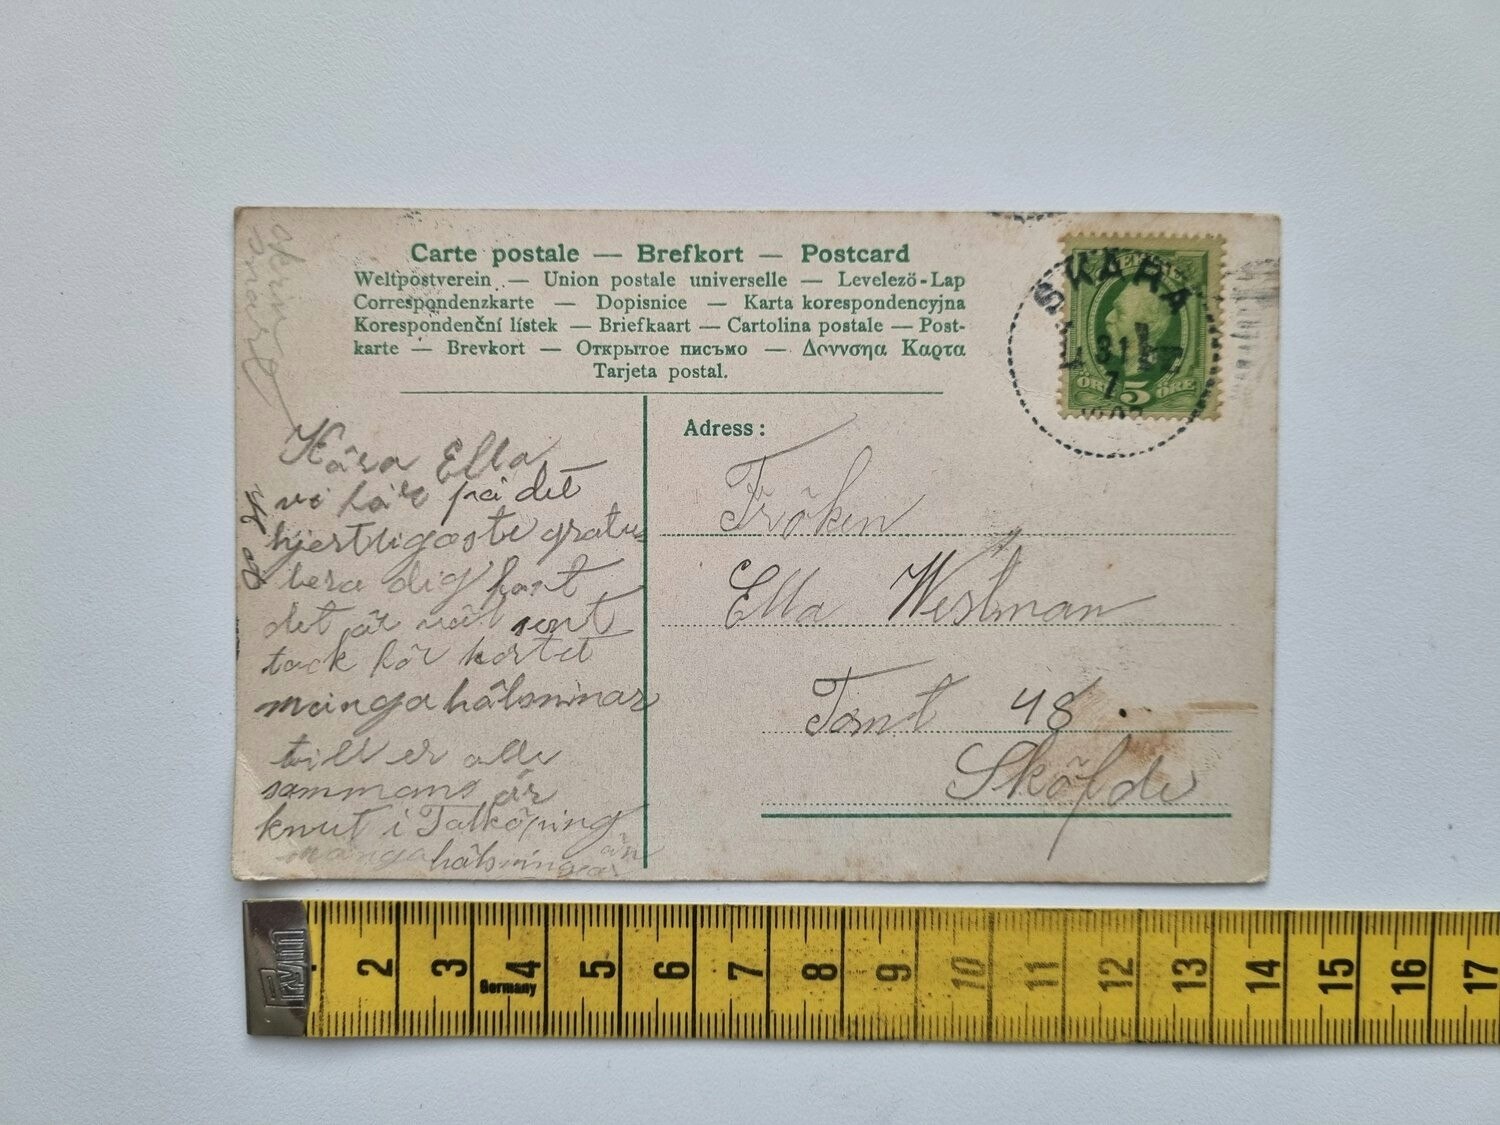 Carte postale — Brefkort — Postcard
Weltpostverein — Union postale universelle — Levelező-Lap
Correspondenzkarte — Dopisnice — Karta korespondencyjna
Korespondenční lístek — Briefkaart — Cartolina postale — Post-
karte — Brevkort — Открытое письмо — Δονυσηα Καρτα
Tarjeta postal.
SKARA
31
7
5
ÖRE
Adress:
Fröken
Ella Westman
Tomt 48
Sköfde
Kära Ella
vi på det
hjertligaste gratu=
lera dig
det är
tack för kortet
många hälsninar
till er alle
sammans är
knut i Falköping
många hälsningar
2 3 4 5 6 7 8 9 10 11 12 13 14 15 16 17
Germany